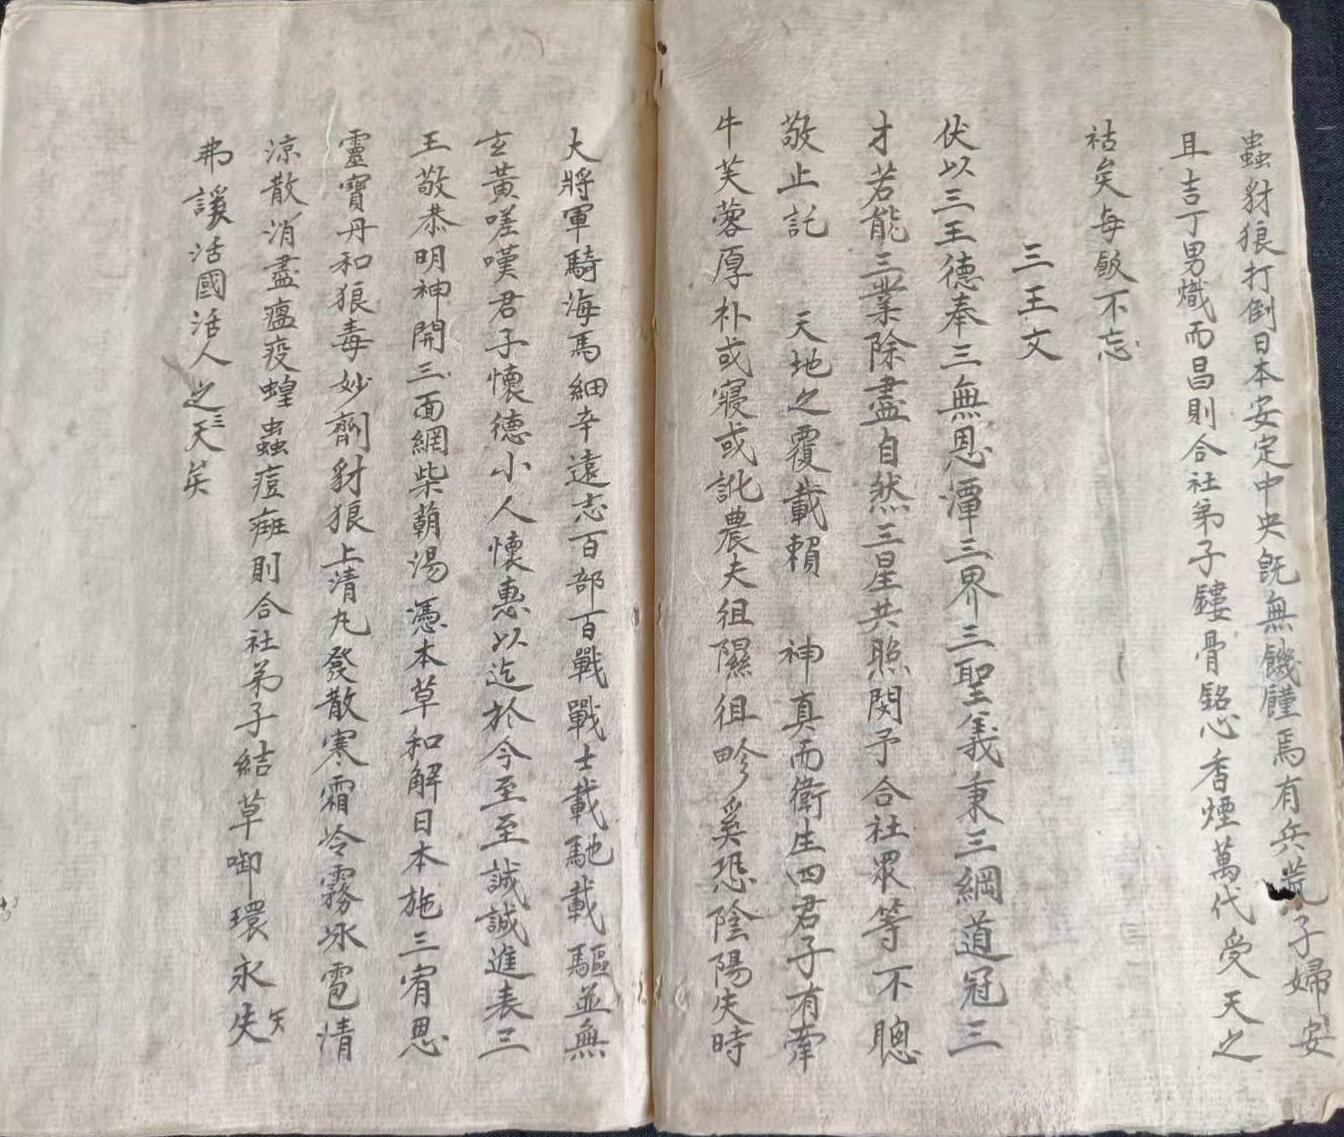 蟲豺狼打倒日本安定中央既無饑饉焉有兵荒子婦安
且吉丁男熾而昌則合社弟子鏤骨銘心香煙萬代受天之
祜矣每飯不忘
三王文
伏以三王德奉三無恩潭三界三聖義秉三綱道冠三
才若能三業除盡自然三星共照閔予合社眾等不聰
敬止託 天地之覆載賴 神真而衛生四君子有牽
牛芙蓉厚朴或寢或訛農夫徂隰徂畛奚恐陰陽失時
大將軍騎海馬細辛遠志百部百戰戰士載馳載驅並無
玄黃嗟嘆君子懷德小人懷惠以迄於今至至誠誠進表三
王敬恭明神開三面網柴萠湯憑本草和解日本施三宥恩
靈寶丹和狼毒妙劑豺狼上清丸發散寒霜冷霧冰雹清
涼散消盡瘟疫蝗蟲痘癍則合社弟子結草啣環永矢
矢
弗諼活國活人之三天矣